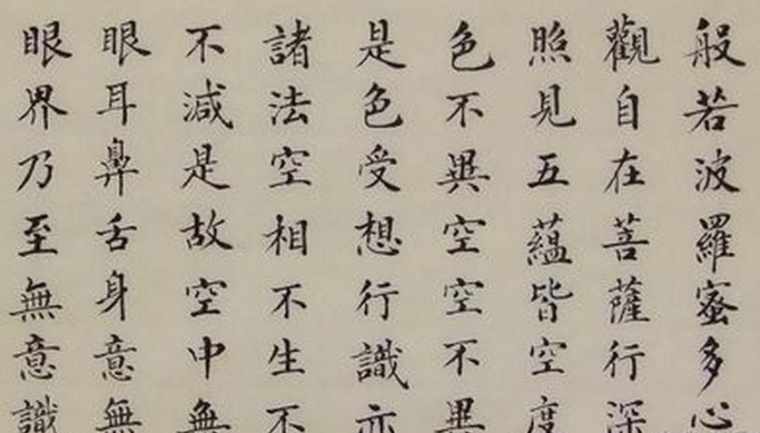 般若波羅蜜多心
觀自在菩薩行深
照見五蘊皆空度
色不異空空不異
是色受想行識亦
諸法空相不生不
不減是故空中無
眼耳鼻舌身意無
眼界乃至無意識